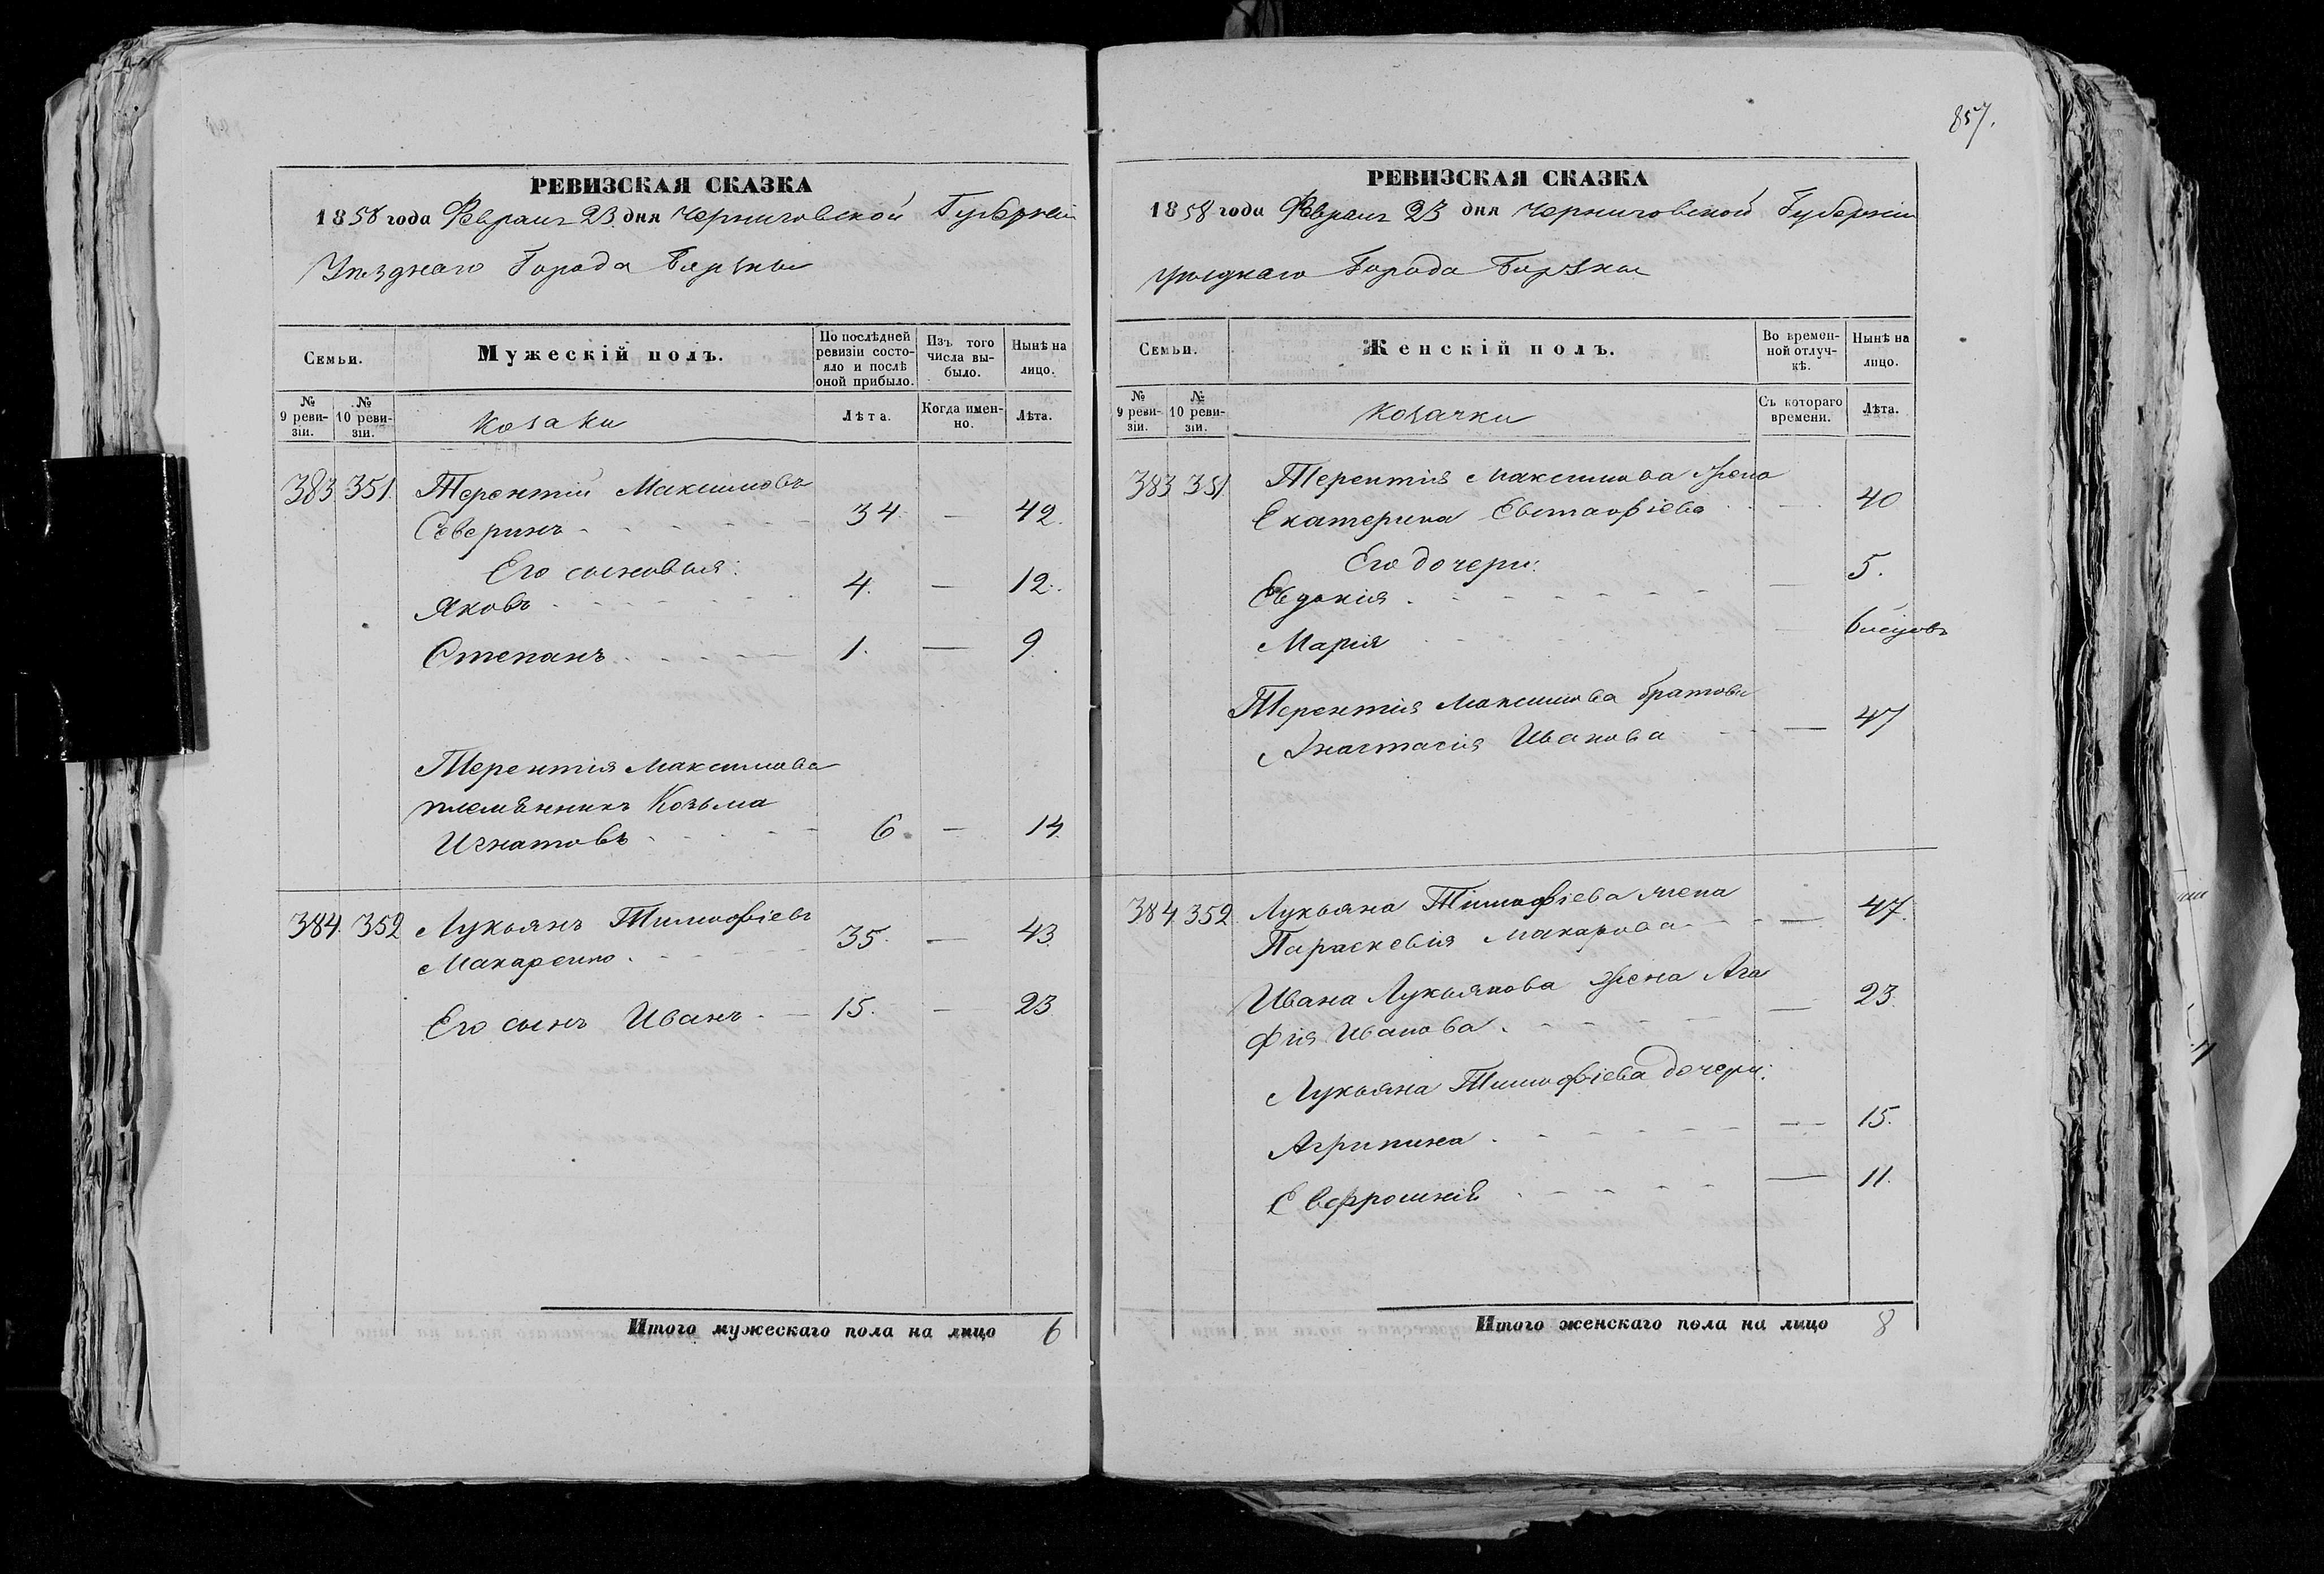 857.
РЕВИЗСКАЯ СКАЗКА
1858 года Февраля 23 дня Черниговской Губерніи
Уѣзднаго Города Борзны
Семьи.
Мужескій полъ.
По послѣдней ревизіи состояло и послѣ оной прибыло.
Изъ того числа выбыло.
Нынѣ на лицо.
№ 9 ревизіи.
№ 10 ревизіи.
Козаки
Лѣта.
Когда именно.
Лѣта.
383 351. Терентій Максимовъ
Северинъ - - - 34. — 42.
Его сыновья:
Яковъ - - - 4. — 12.
Степанъ - - - 1. — 9.
Терентія Максимова
племянникъ Козьма
Игнатовъ - - - 6. — 14.
384. 352 Лукьянъ Тимофіевъ
Макаренко - - - 35. — 43.
Его сынъ Иванъ - — 15. — 23.
Итого мужескаго пола на лицо 6
РЕВИЗСКАЯ СКАЗКА
1858 года Февраля 23 дня Черниговской Губерніи
уѣзднаго Города Борзны
Семьи.
Женскій полъ.
Во временной отлучкѣ.
Нынѣ на лицо.
№ 9 ревизіи.
№ 10 ревизіи.
Козачки
Съ котораго времени.
Лѣта.
383 351 Терентія Максимова жена
Екатерина Евстафіева - - - 40
Его дочери:
Евдокія - - - — 5.
Марія - - - — 6 месцовъ
Терентія Максимова братова
Анастасія Иванова - - — 47
384 352 Лукьяна Тимофіева жена
Параскевія Макарова - - — 47.
Ивана Лукьянова жена Ага
фія Иванова - - - — 23.
Лукьяна Тимофіева дочери:
Агрипина - - - — 15.
Евфросинія - - - — 11.
Итого женскаго пола на лицо 8